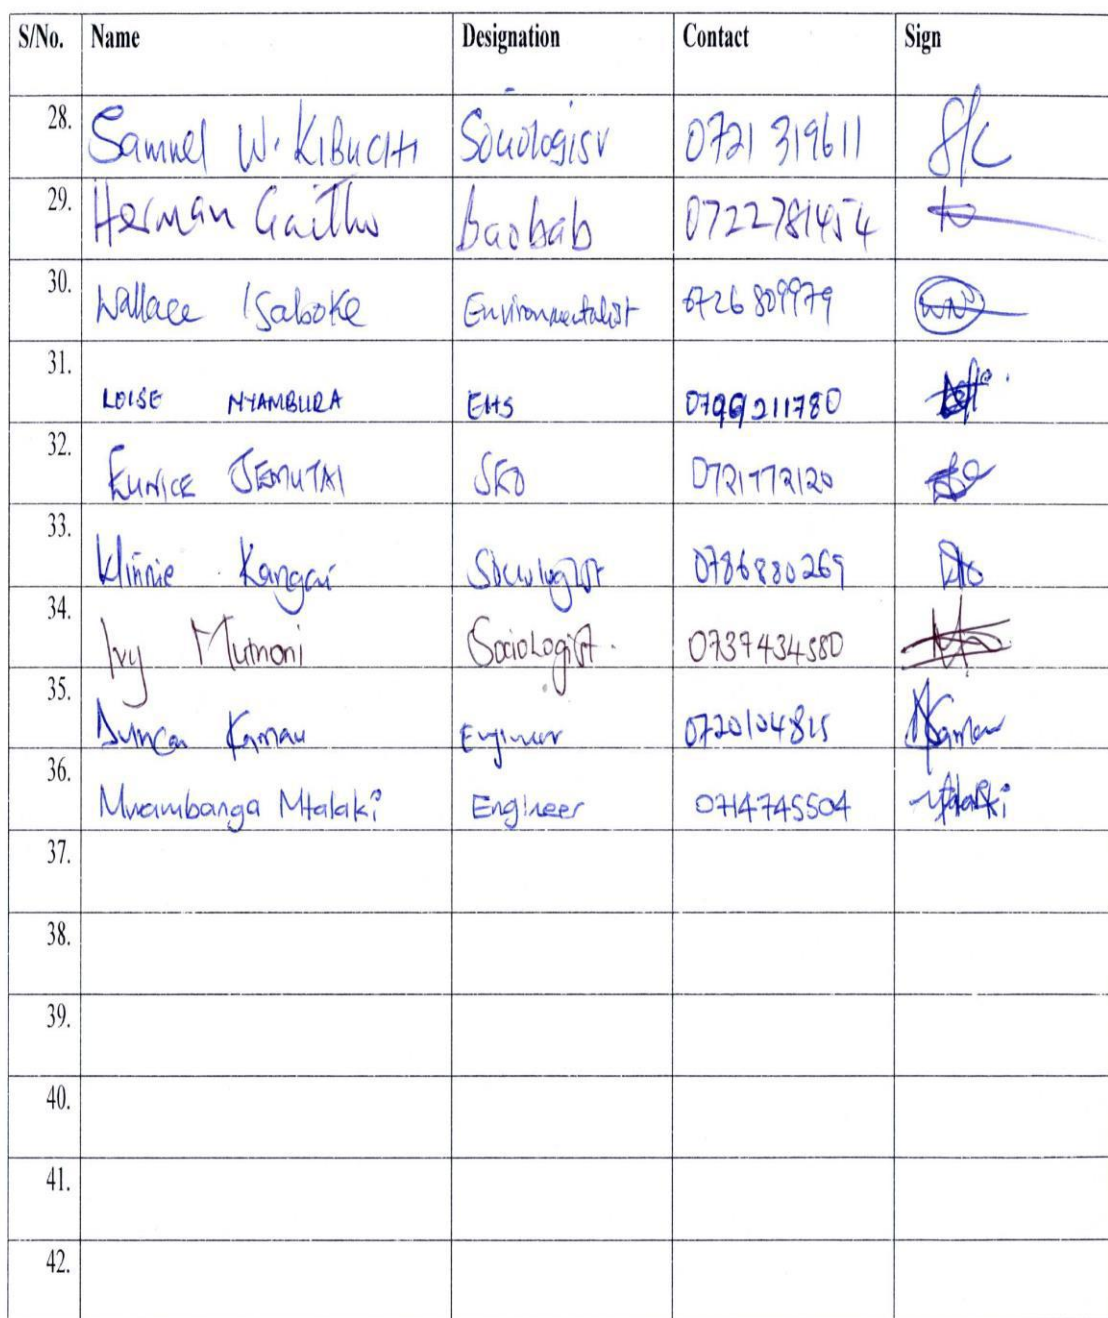 S/No. Name Designation Contact Sign
28. Samuel W. KIBUCHI Sociologist 0721 319611 S/C
29. Herman Gaitho baobab 0722781454
30. Wallace Isaboke Environmentalist 0726809979
31. LOISE NYAMBURA EHS 0799211780
32. EUNICE JEMUTAI SEO 0721772120
33. Kangai Sociologist 0786880269
34. Ivy Mumoni Sociologist. 0737434580
35. Duncan Kamau Engineer 0720104815 Kamau
36. Mwambanga Mtalaki Engineer 0714745504 Mtalaki
37.
38.
39.
40.
41.
42.